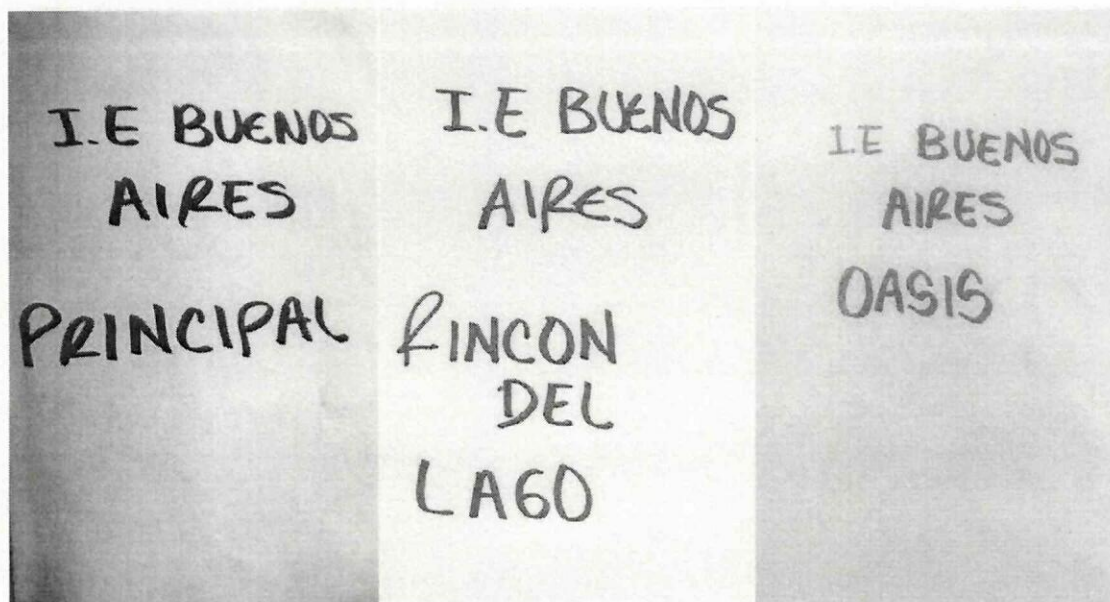 I.E BUENOS
AIRES
PRINCIPAL
I.E BUENOS
AIRES
RINCON
DEL
LAGO
I.E BUENOS
AIRES
OASIS